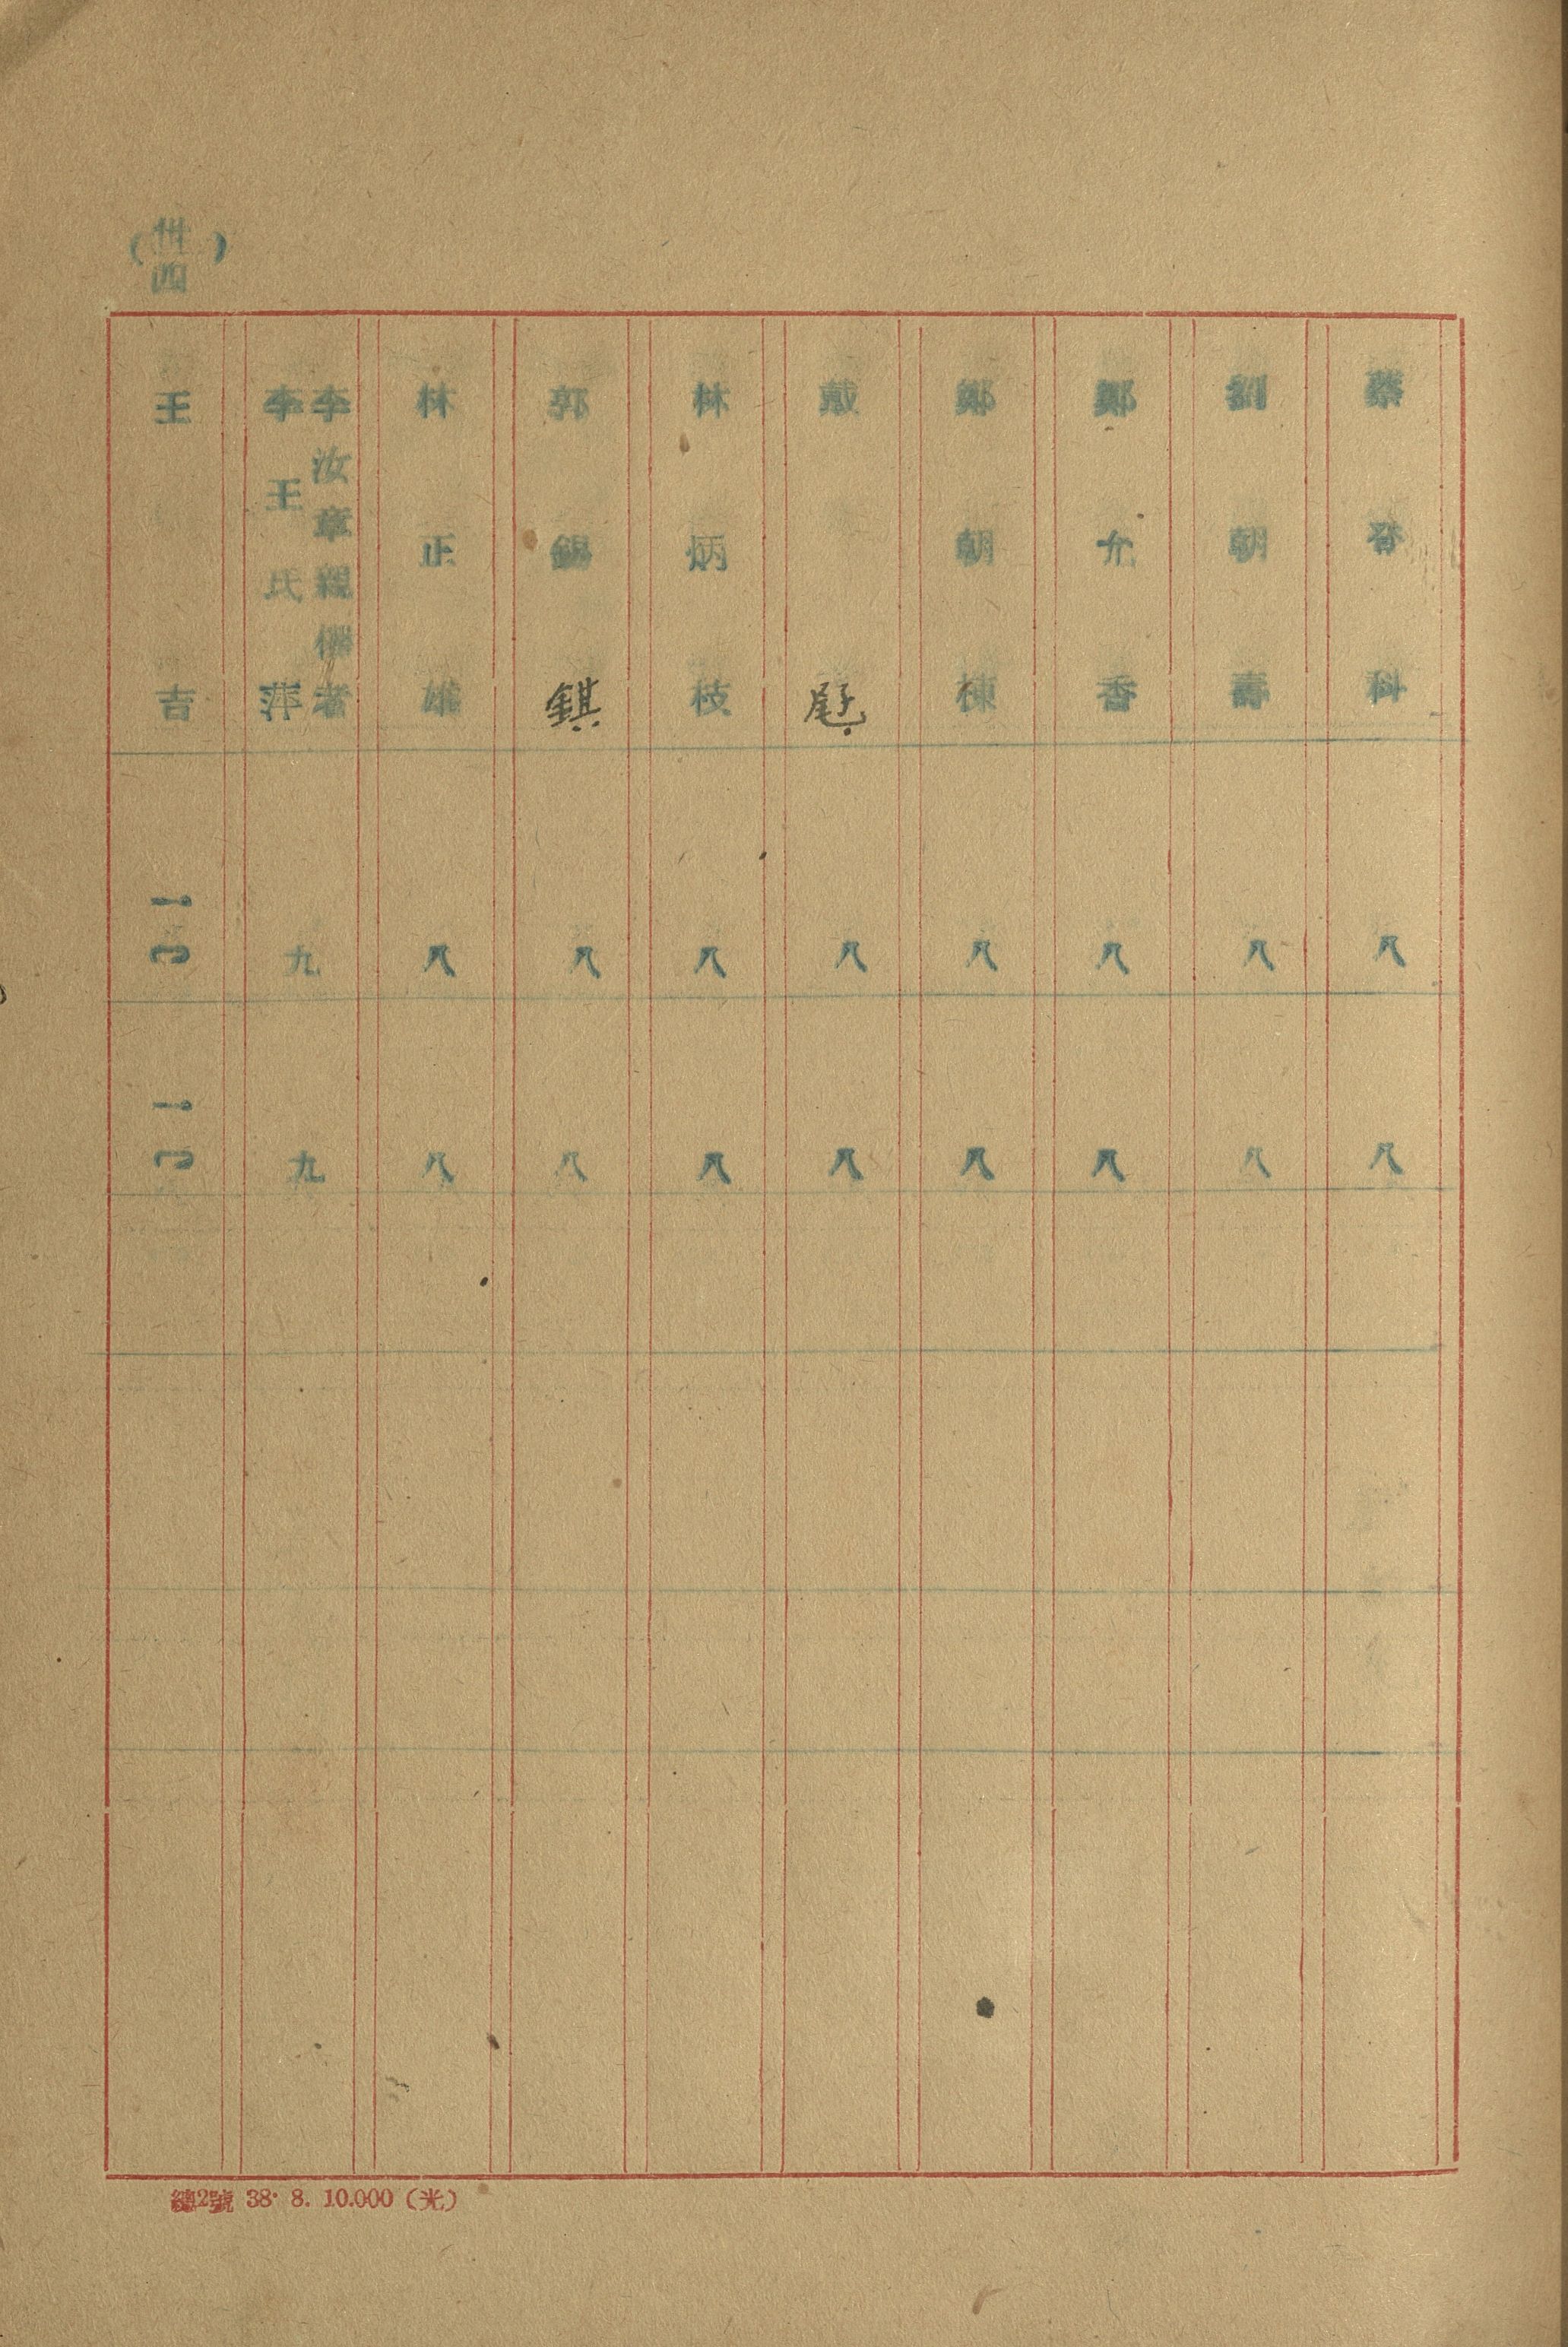 蔡 香 科 八 八
劉 朝 壽 八 八
鄭 允 香 八 八
鄭 朝 棟 八 八
戴 八 八
林 炳 枝 八 八
郭 錫 錤 八 八
林 正 雄 八 八
李汝章親權者
李王氏萍 九 九
王 吉
(卅四)
總2號 38· 8. 10.000 (光)